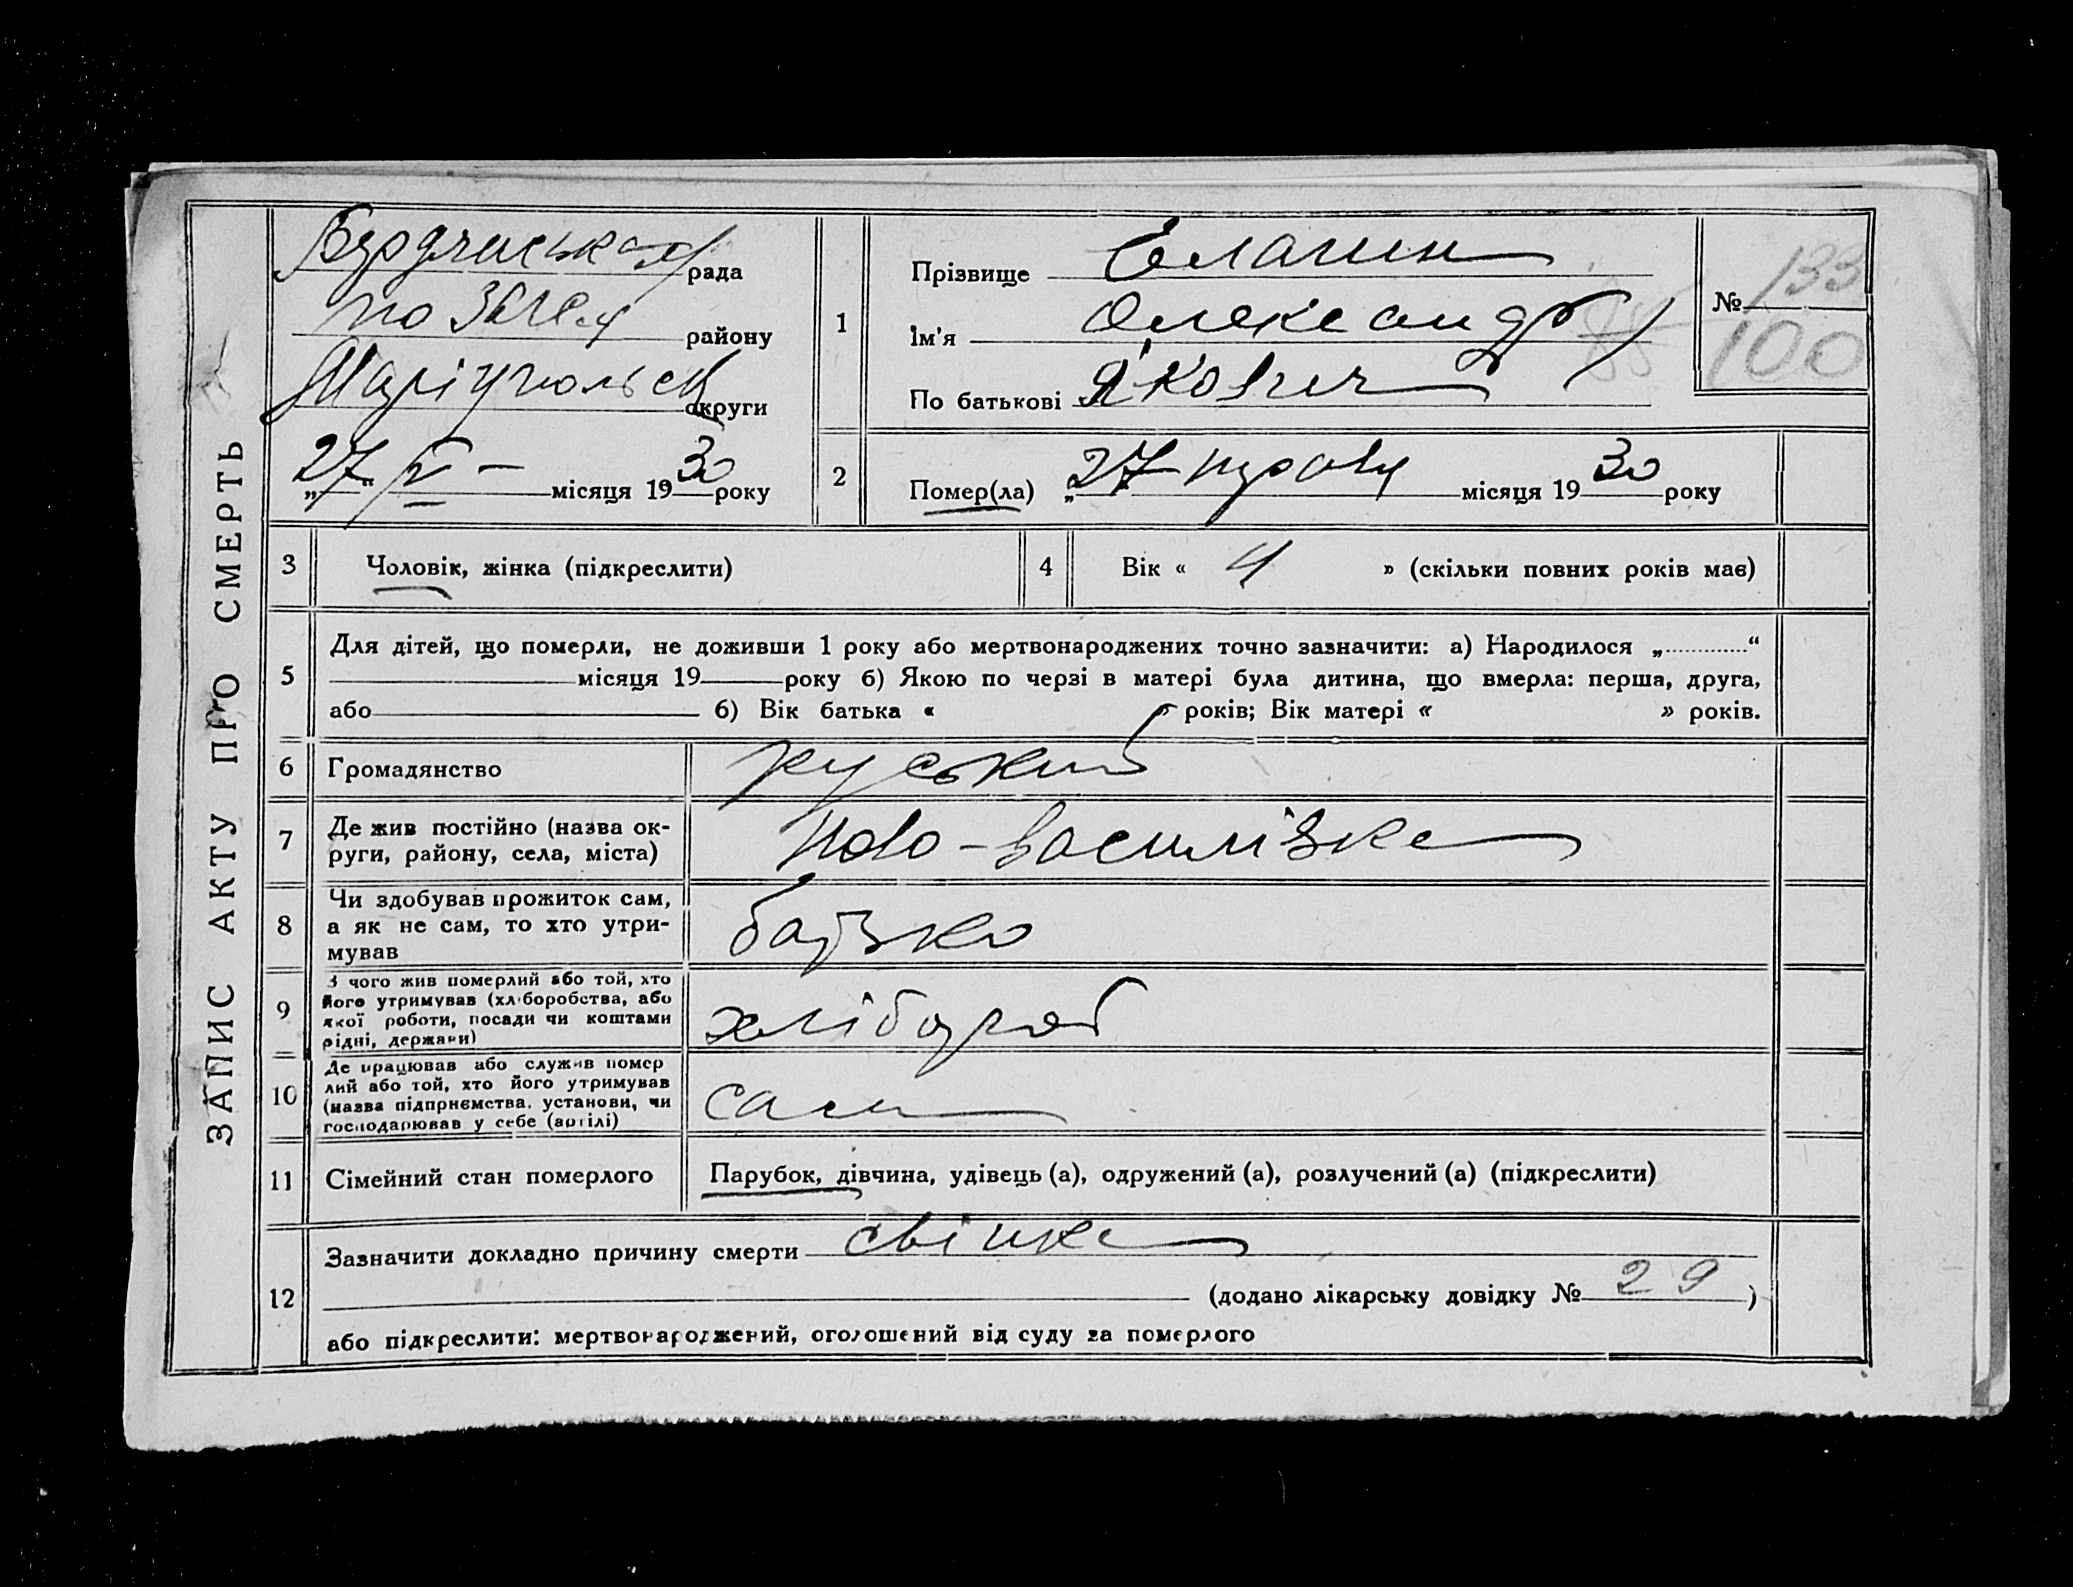 ЗАПИС АКТУ ПРО СМЕРТЬ
рада
району
округи
„27“ V – місяця 1930 року
1
Прізвище Еланин
Ім'я Олександр
По батькові Якович
№ 133
100
2
Помер(ла) „27 травня місяця 1930 року
3 Чоловік, жінка (підкреслити)
4 Вік « 4 » (скільки повних років має)
5
Для дітей, що померли, не доживши 1 року або мертвонароджених точно зазначити: а) Народилося „............“
місяця 19 року б) Якою по черзі в матері була дитина, що вмерла: перша, друга,
або б) Вік батька « » років; Вік матері « » років.
6 Громадянство руський
7 Де жив постійно (назва ок-
руги, району, села, міста) Ново-Василівка
8 Чи здобував прожиток сам,
а як не сам, то хто утри-
мував батько
9 З чого жив померлий або той, хто
його утримував (хліборобства, або
якої роботи, посади чи коштами
рідні, держави) хлібороб
10 Де працював або служив помер
лий або той, хто його утримував
(назва підприємства, установи, чи
господарював у себе (артілі) сам
11 Сімейний стан померлого Парубок, дівчина, удівець (а), одружений (а), розлучений (а) (підкреслити)
12
Зазначити докладно причину смерти
(додано лікарську довідку № 29 )
або підкреслити: мертвонароджений, оголошений від суду за померлого